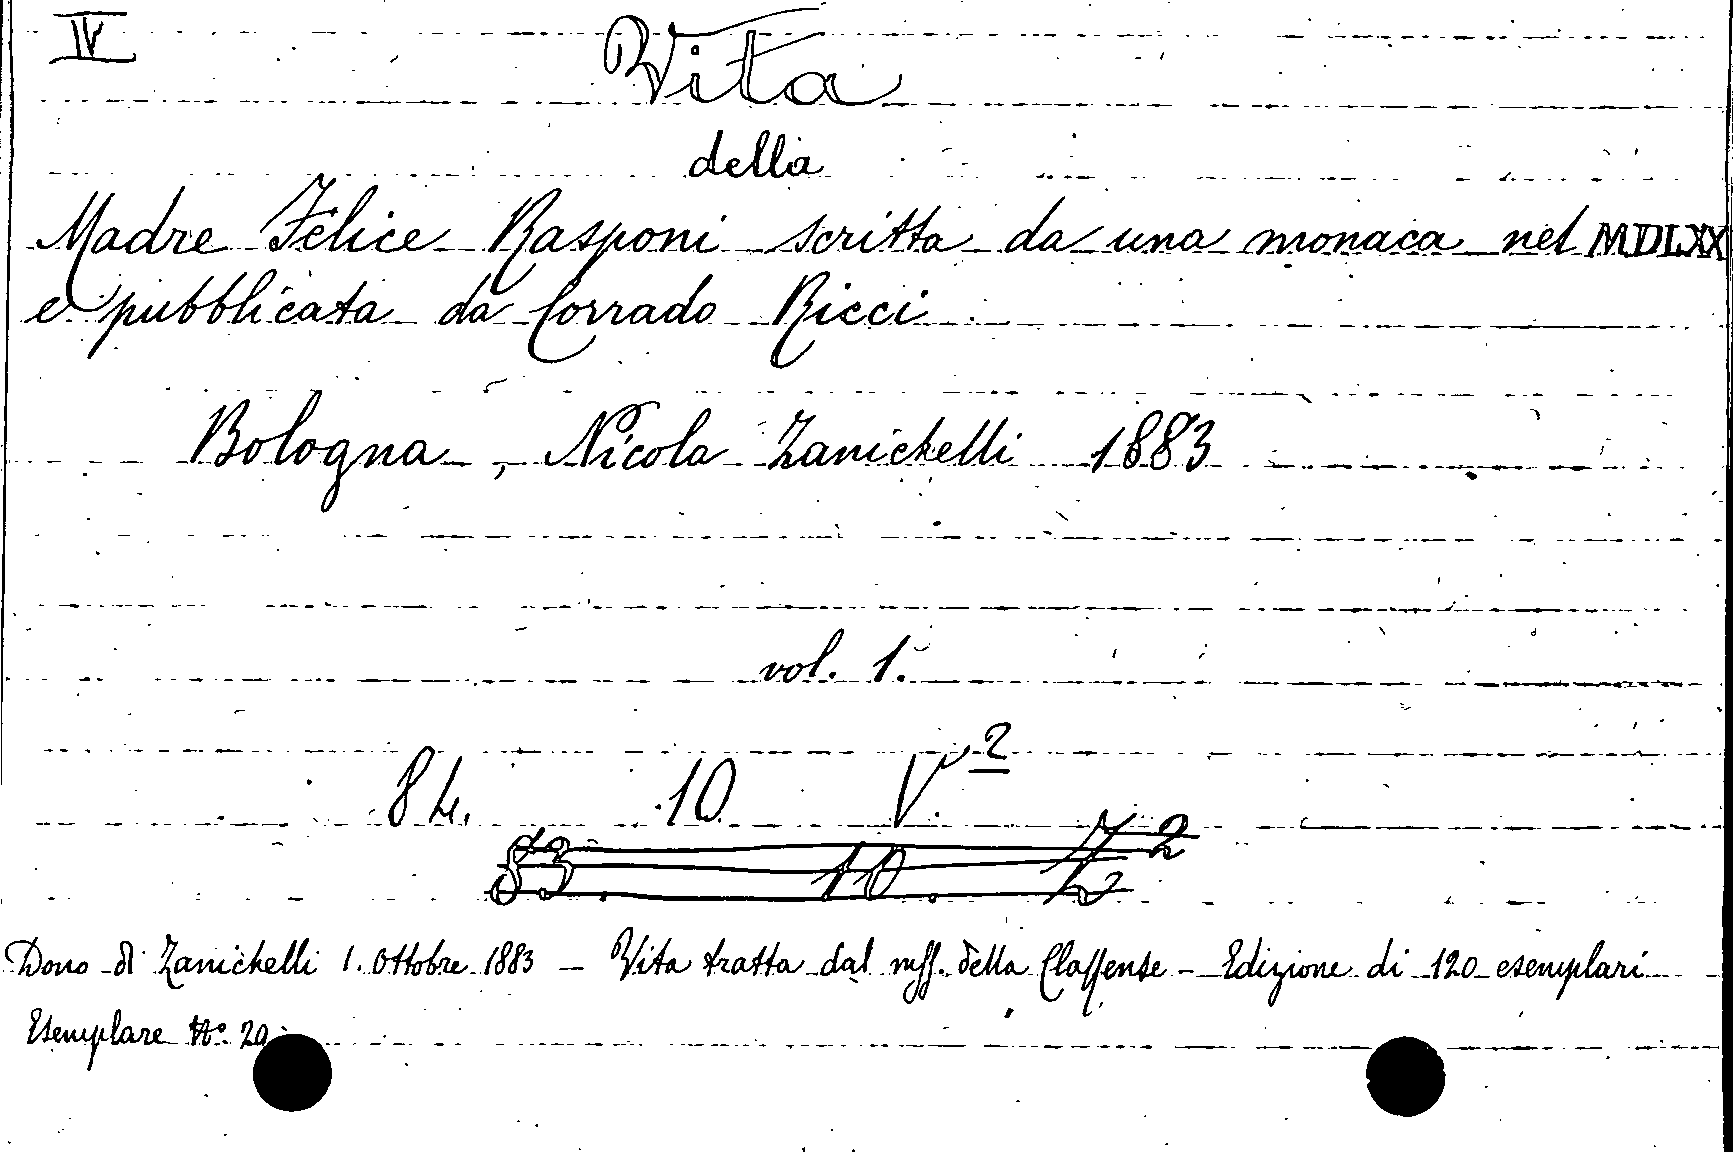 IV
Vita
della
Madre Felice Rasponi scritta da una monaca nel MDLXX
e pubblicata da Corrado Ricci
Bologna, Nicola Zanichelli 1883
vol. 1.
84. 10 V. 2
83. 10. 2
Dono di Zanichelli 1. Ottobre 1883 – Vita tratta dal mss. della Classense – Edizione di 120 esemplari
Esemplare No. 20